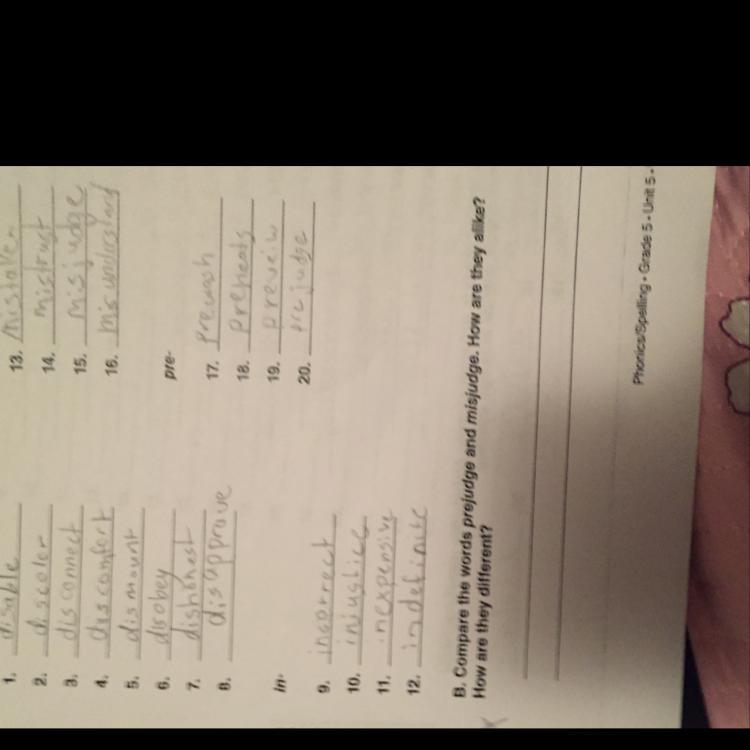 1. disable
2. discolor
3. disconnect
4. discomfort
5. dismount
6. disobey
7. dishonest
8. disapprove
in-
9. incorrect
10. injustice
11. inexpensive
12. indefinite
13. mistaken
14. mistrust
15. misjudge
16. misunderstand
pre-
17. prewash
18. preheats
19. preveiw
20. prejudge
B. Compare the words prejudge and misjudge. How are they alike?
How are they different?
Phonics/Spelling • Grade 5 • Unit 5 •